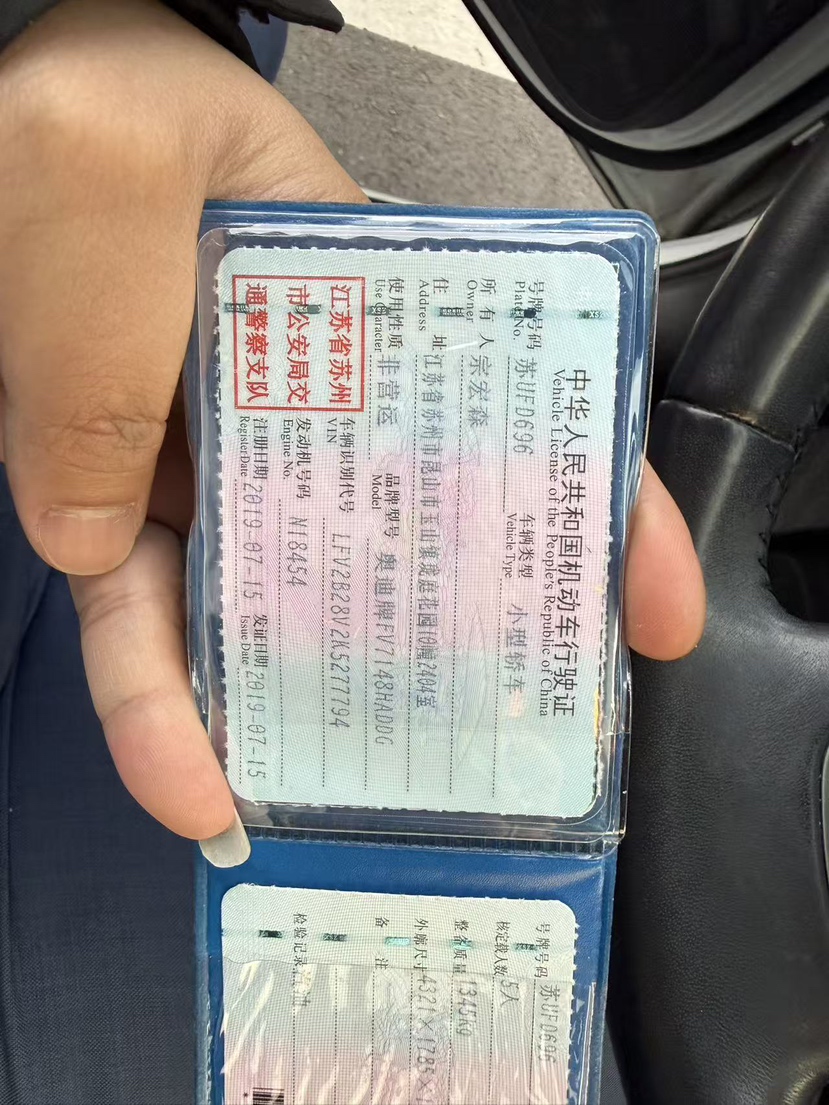 中华人民共和国机动车行驶证
Vehicle License of the People's Republic of China
号牌号码 苏UFD696 车辆类型 小型轿车
Plate No. Vehicle Type
所有人 宗宏森
Owner
住址 江苏省苏州市昆山市玉山镇珑庭花园10幢2404室
Address
使用性质 非营运 品牌型号 奥迪牌FV7148HADDG
Use Character Model
江苏省苏州
市公安局交
通警察支队
车辆识别代号 LFV2B28V2K5277794
VIN
发动机号码 N18454
Engine No.
注册日期 2019-07-15 发证日期 2019-07-15
Register Date Issue Date
号牌号码 苏UFD696
核定载人数 5人
整备质量 1345kg
外廓尺寸 4321×1785×1
备注
检验记录